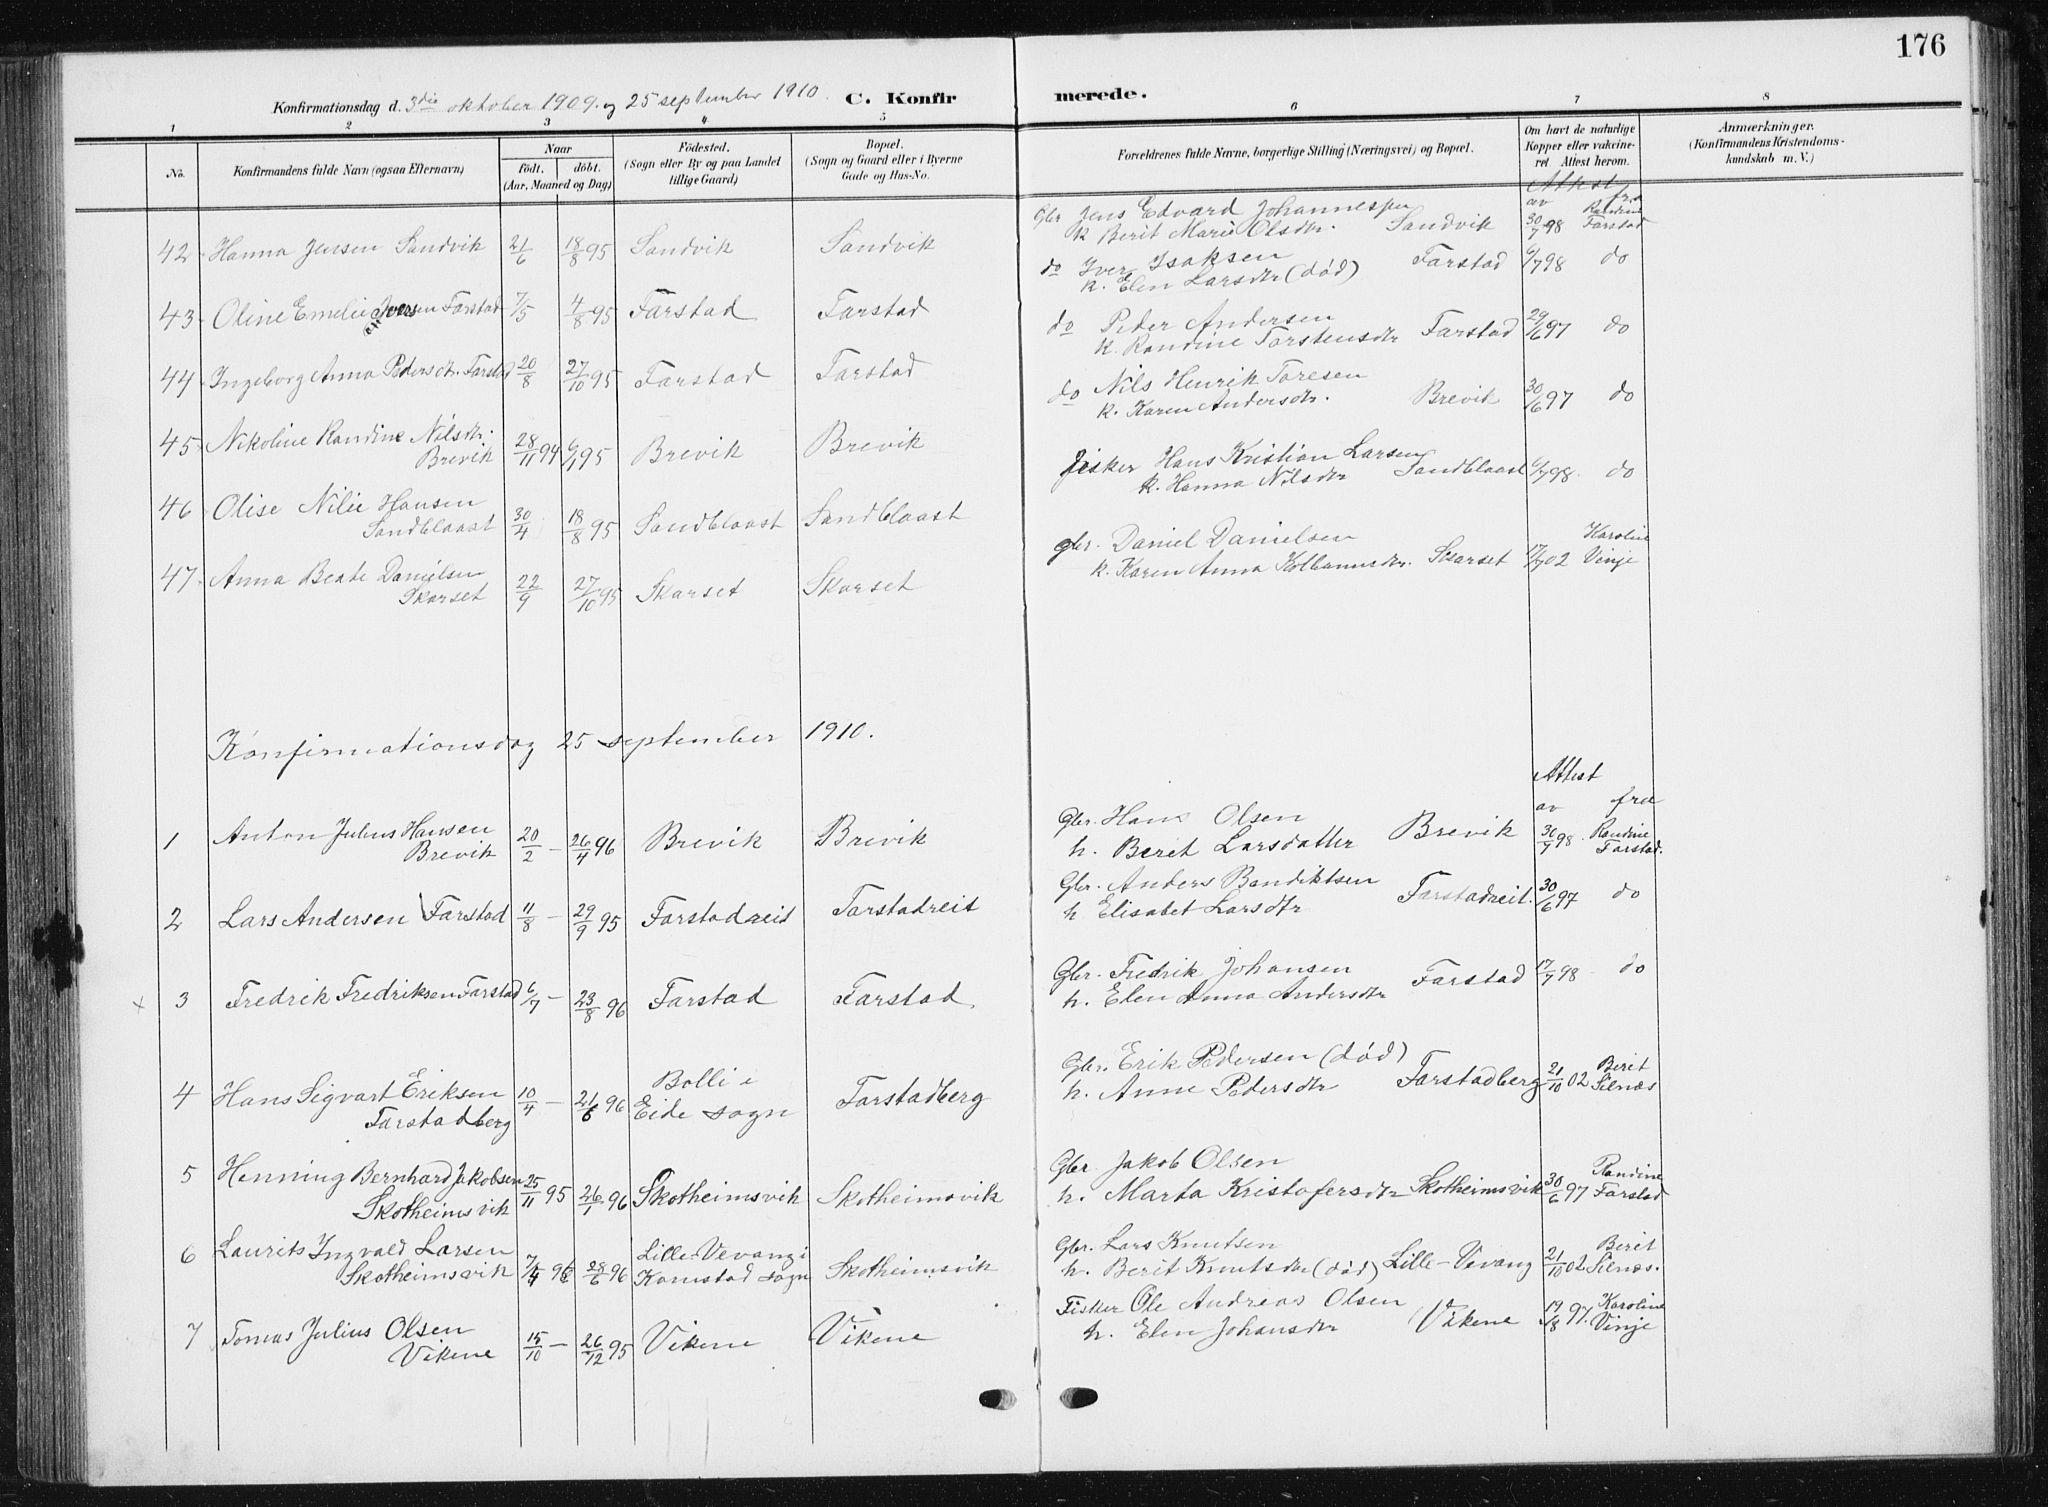 176
Konfirmationsdag d. 3die oktober 1909. og 25 september 1910. C. Konfirmerede.
1 2 3 4 5 6 7 8
No. Konfirmandens fulde Navn (ogsaa Efternavn) Naar født. døbt. (Aar, Maaned og Dag) Fødested. (Sogn eller By og paa Landet tillige Gaard) Bopæl. (Sogn og Gaard eller i Byerne Gade og Hus-No. Forældrenes fulde Navne, borgerlige Stilling (Næringsvei) og Bopæl. Om havt de naturlige Kopper eller vakcineret. Attest herom. Anmærkninger. (Konfirmandens Kristendomskundskab m. V.)
Attest av fra
42 Hanna Jensen Sandvik 21/6 18/8 95 Sandvik Sandvik Gbr Jens Edvard Johannesen k Berit Marie Olsdtr. Sandvik 30/7 98 Randine Farstad
43 Oline Emelie Iversen Farstad 7/5 4/8 95 Farstad Farstad do Iver Isaksen k. Elen Larsdtr (død) Farstad 6/7 98 do
44 Ingeborg Anna Pedersdtr. Farstad 20/8 27/10 95 Farstad Farstad do Peder Andersen k. Randine Torstensdtr Farstad 29/6 97 do
45 Nikoline Randine Nilsdtr. Brevik 28/11 94 6/1 95 Brevik Brevik do Nils Henrik Toresen k. Karen Andersdtr. Brevik 30/6 97 do
46 Olise Nilie Hansen Sandblaast 30/4 18/8 95 Sandblaast Sandblaast Fisker Hans Kristian Larsen k. Hanna Nilsdtr Sandblaast 6/7 98. do
47 Anna Beate Danielsen Skarset 22/9 27/10 95 Skarset Skarset gbr. Daniel Danielsen k. Karen Anna Kolbannsdtr. Skarset 17/7 02 Karoline Vinje
Konfirmationsdag 25 september 1910.
Attest
av fra
1 Anton Julius Hansen Brevik 20/2 — 26/4 96 Brevik Brevik Gbr. Hans Olsen h. Beret Larsdatter Brevik 30/7 98. Randine Farstad.
2 Lars Andersen Farstad 11/8 — 29/9 95 Farstadreit Farstadreit Gbr. Anders Bendiktsen h Elisabet Larsdtr Farstadreit. 30/6 97 do
x 3 Fredrik Fredriksen Farstad 6/7 — 23/8 96 Farstad Farstad Gbr. Fredrik Johansen h. Elen Anna Andersdtr Farstad 17/7 98 do
4 Hans Sigvart Eriksen Farstadberg 10/4 — 21/6 96 Bolli i Eide sogn Farstadberg Gbr. Erik Pedersen (død) h. Anne Pedersdtr Farstadberg 21/10 02 Beret Silnes
5 Henning Bernhard Jakobsen Skotheimsvik 25/11 95 26/1 96 Skotheimsvik Skotheimsvik Gbr. Jakob Olsen h. Marta Kristofersdtr Skotheimsvik 30/6 97 Randine Farstad
6 Laurits Ingvald Larsen Skotheimsvik 7/4 96 28/6 96 Lille-Vevang i Kornstad sogn Skotheimsvik Gbr. Lars Knutsen h. Berit Knutsdtr (død) Lille-Vevang 21/10 02 Beret Silnes.
7 Tomas Julius Olsen Vikene 15/10 — 26/12 95 Vikene Vikene Fisker Ole Andreas Olsen h. Elen Johansdtr Vikene 19/8 97. Karoline Vinje